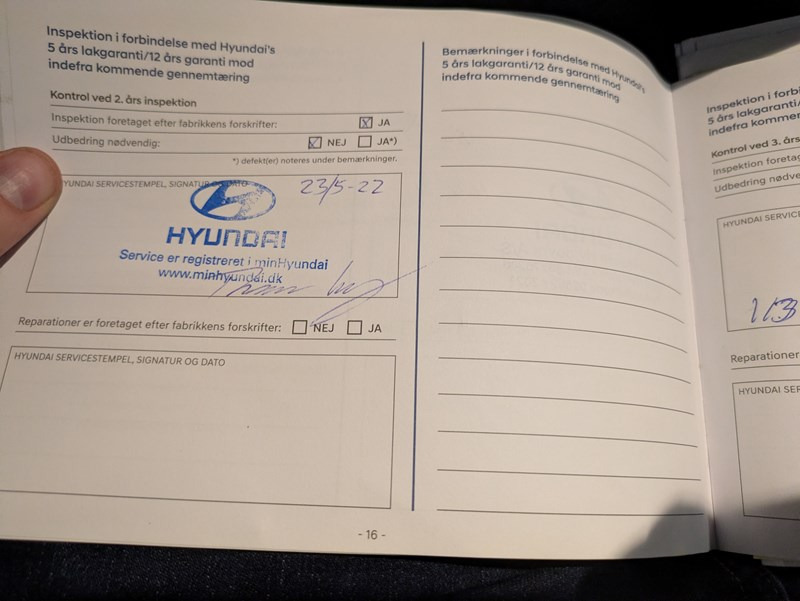 Inspektion i forbindelse med Hyundai's
5 års lakgaranti/12 års garanti mod
indefra kommende gennemtæring
Kontrol ved 2. års inspektion
Inspektion foretaget efter fabrikkens forskrifter: JA
Udbedring nødvendig: NEJ JA*)
*) defekt(er) noteres under bemærkninger.
HYUNDAI SERVICESTEMPEL, SIGNATUR OG DATO
23/5-22
HYUNDAI
Service er registreret i minHyundai
www.minhyundai.dk
Reparationer er foretaget efter fabrikkens forskrifter: NEJ JA
HYUNDAI SERVICESTEMPEL, SIGNATUR OG DATO
- 16 -
Bemærkninger i forbindelse med Hyundai's
5 års lakgaranti/12 års garanti mod
indefra kommende gennemtæring
Inspektion i
5 års lakgaranti
indefra
Kontrol ved 3. års
Inspektion
Udbedring
HYUNDAI
Reparationer
HYUNDAI